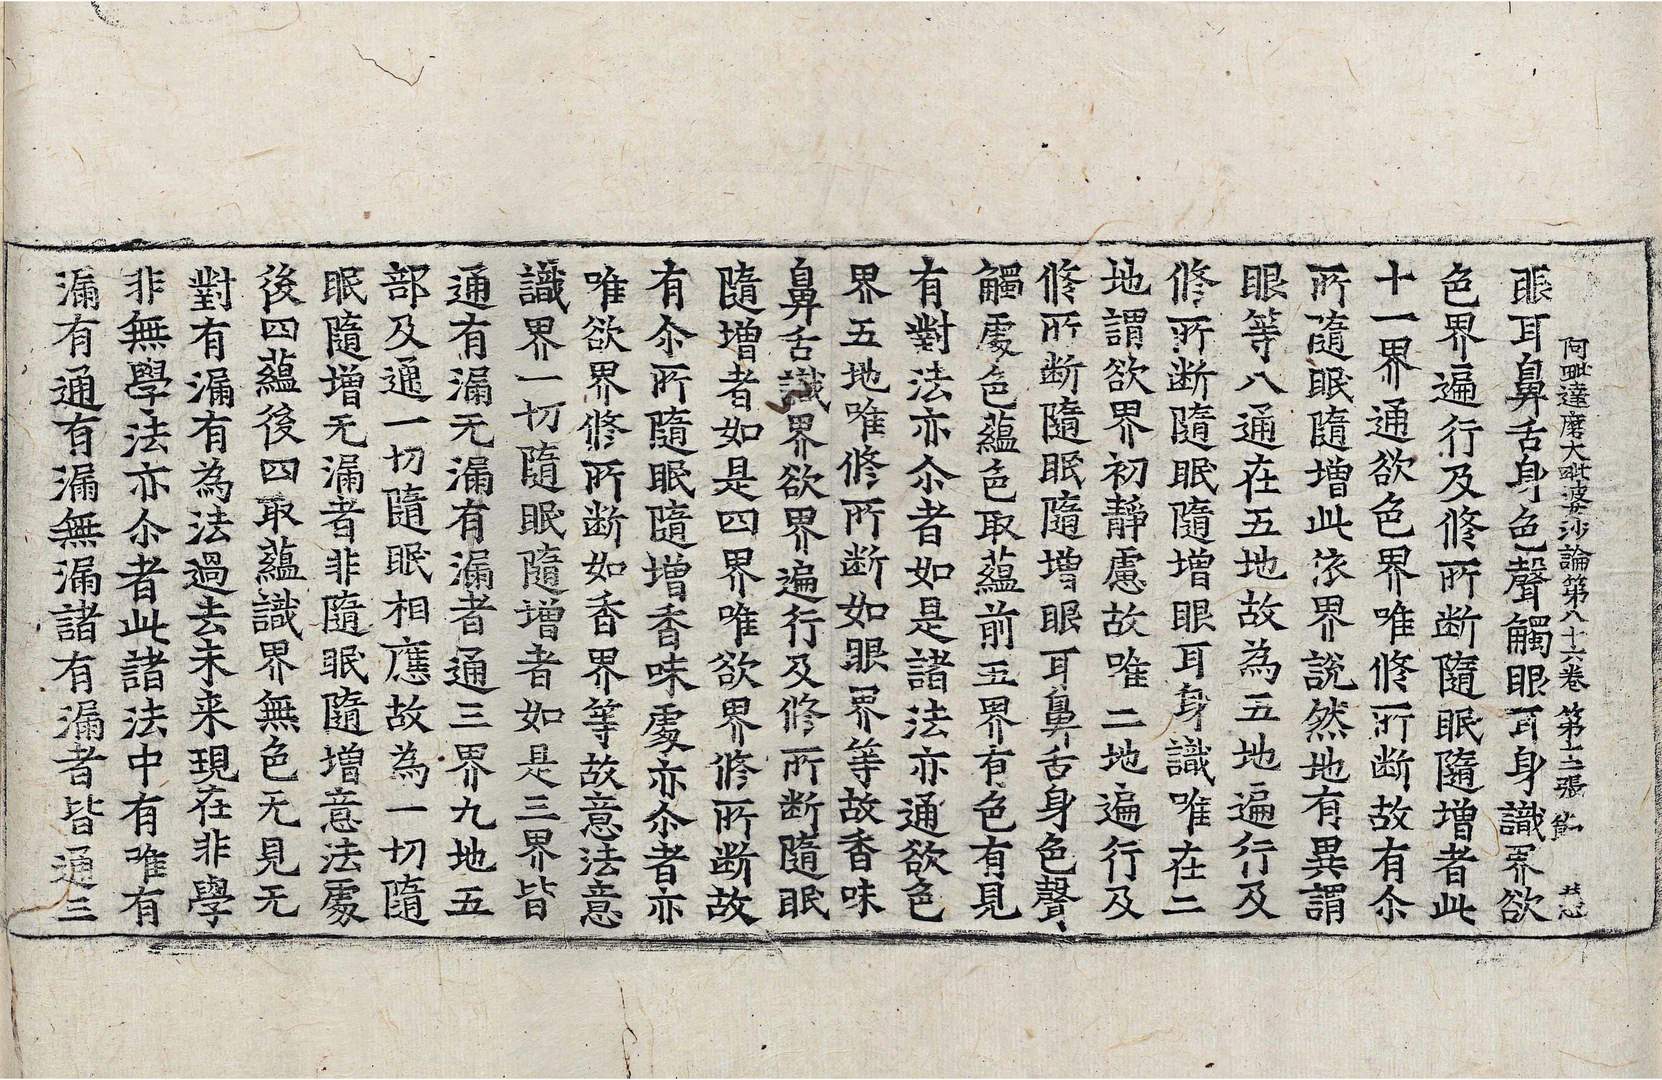 阿毗達磨大毗婆沙論第八十六卷 第十二張 䬃 某忍
眼耳鼻舌身色聲觸眼耳身識界欲
色界遍行及修所斷隨眠隨增者此
十一界通欲色界唯修所断故有尒
所隨眠隨增此依界說然地有異謂
眼等八通在五地故為五地遍行及
修所断隨眠隨增眼耳身識唯在二
地謂欲界初靜慮故唯二地遍行及
修所断隨眠隨增眼耳鼻舌身色聲
觸處色蘊色取蘊前五界有色有見
有對法亦尒者如是諸法亦通欲色
界五地唯修所断如眼界等故香味
鼻舌識界欲界遍行及修所断隨眠
隨增者如是四界唯欲界修所断故
有尒所隨眠隨增香味處亦尒者亦
唯欲界修所断如香界等故意法意
識界一切隨眠隨增者如是三界皆
通有漏无漏有漏者通三界九地五
部及通一切隨眠相應故為一切隨
眠隨增无漏者非隨眠隨增意法處
後四蘊後四取蘊識界無色无見无
對有漏有為法過去未来現在非學
非無學法亦尒者此諸法中有唯有
漏有通有漏無漏諸有漏者皆通三